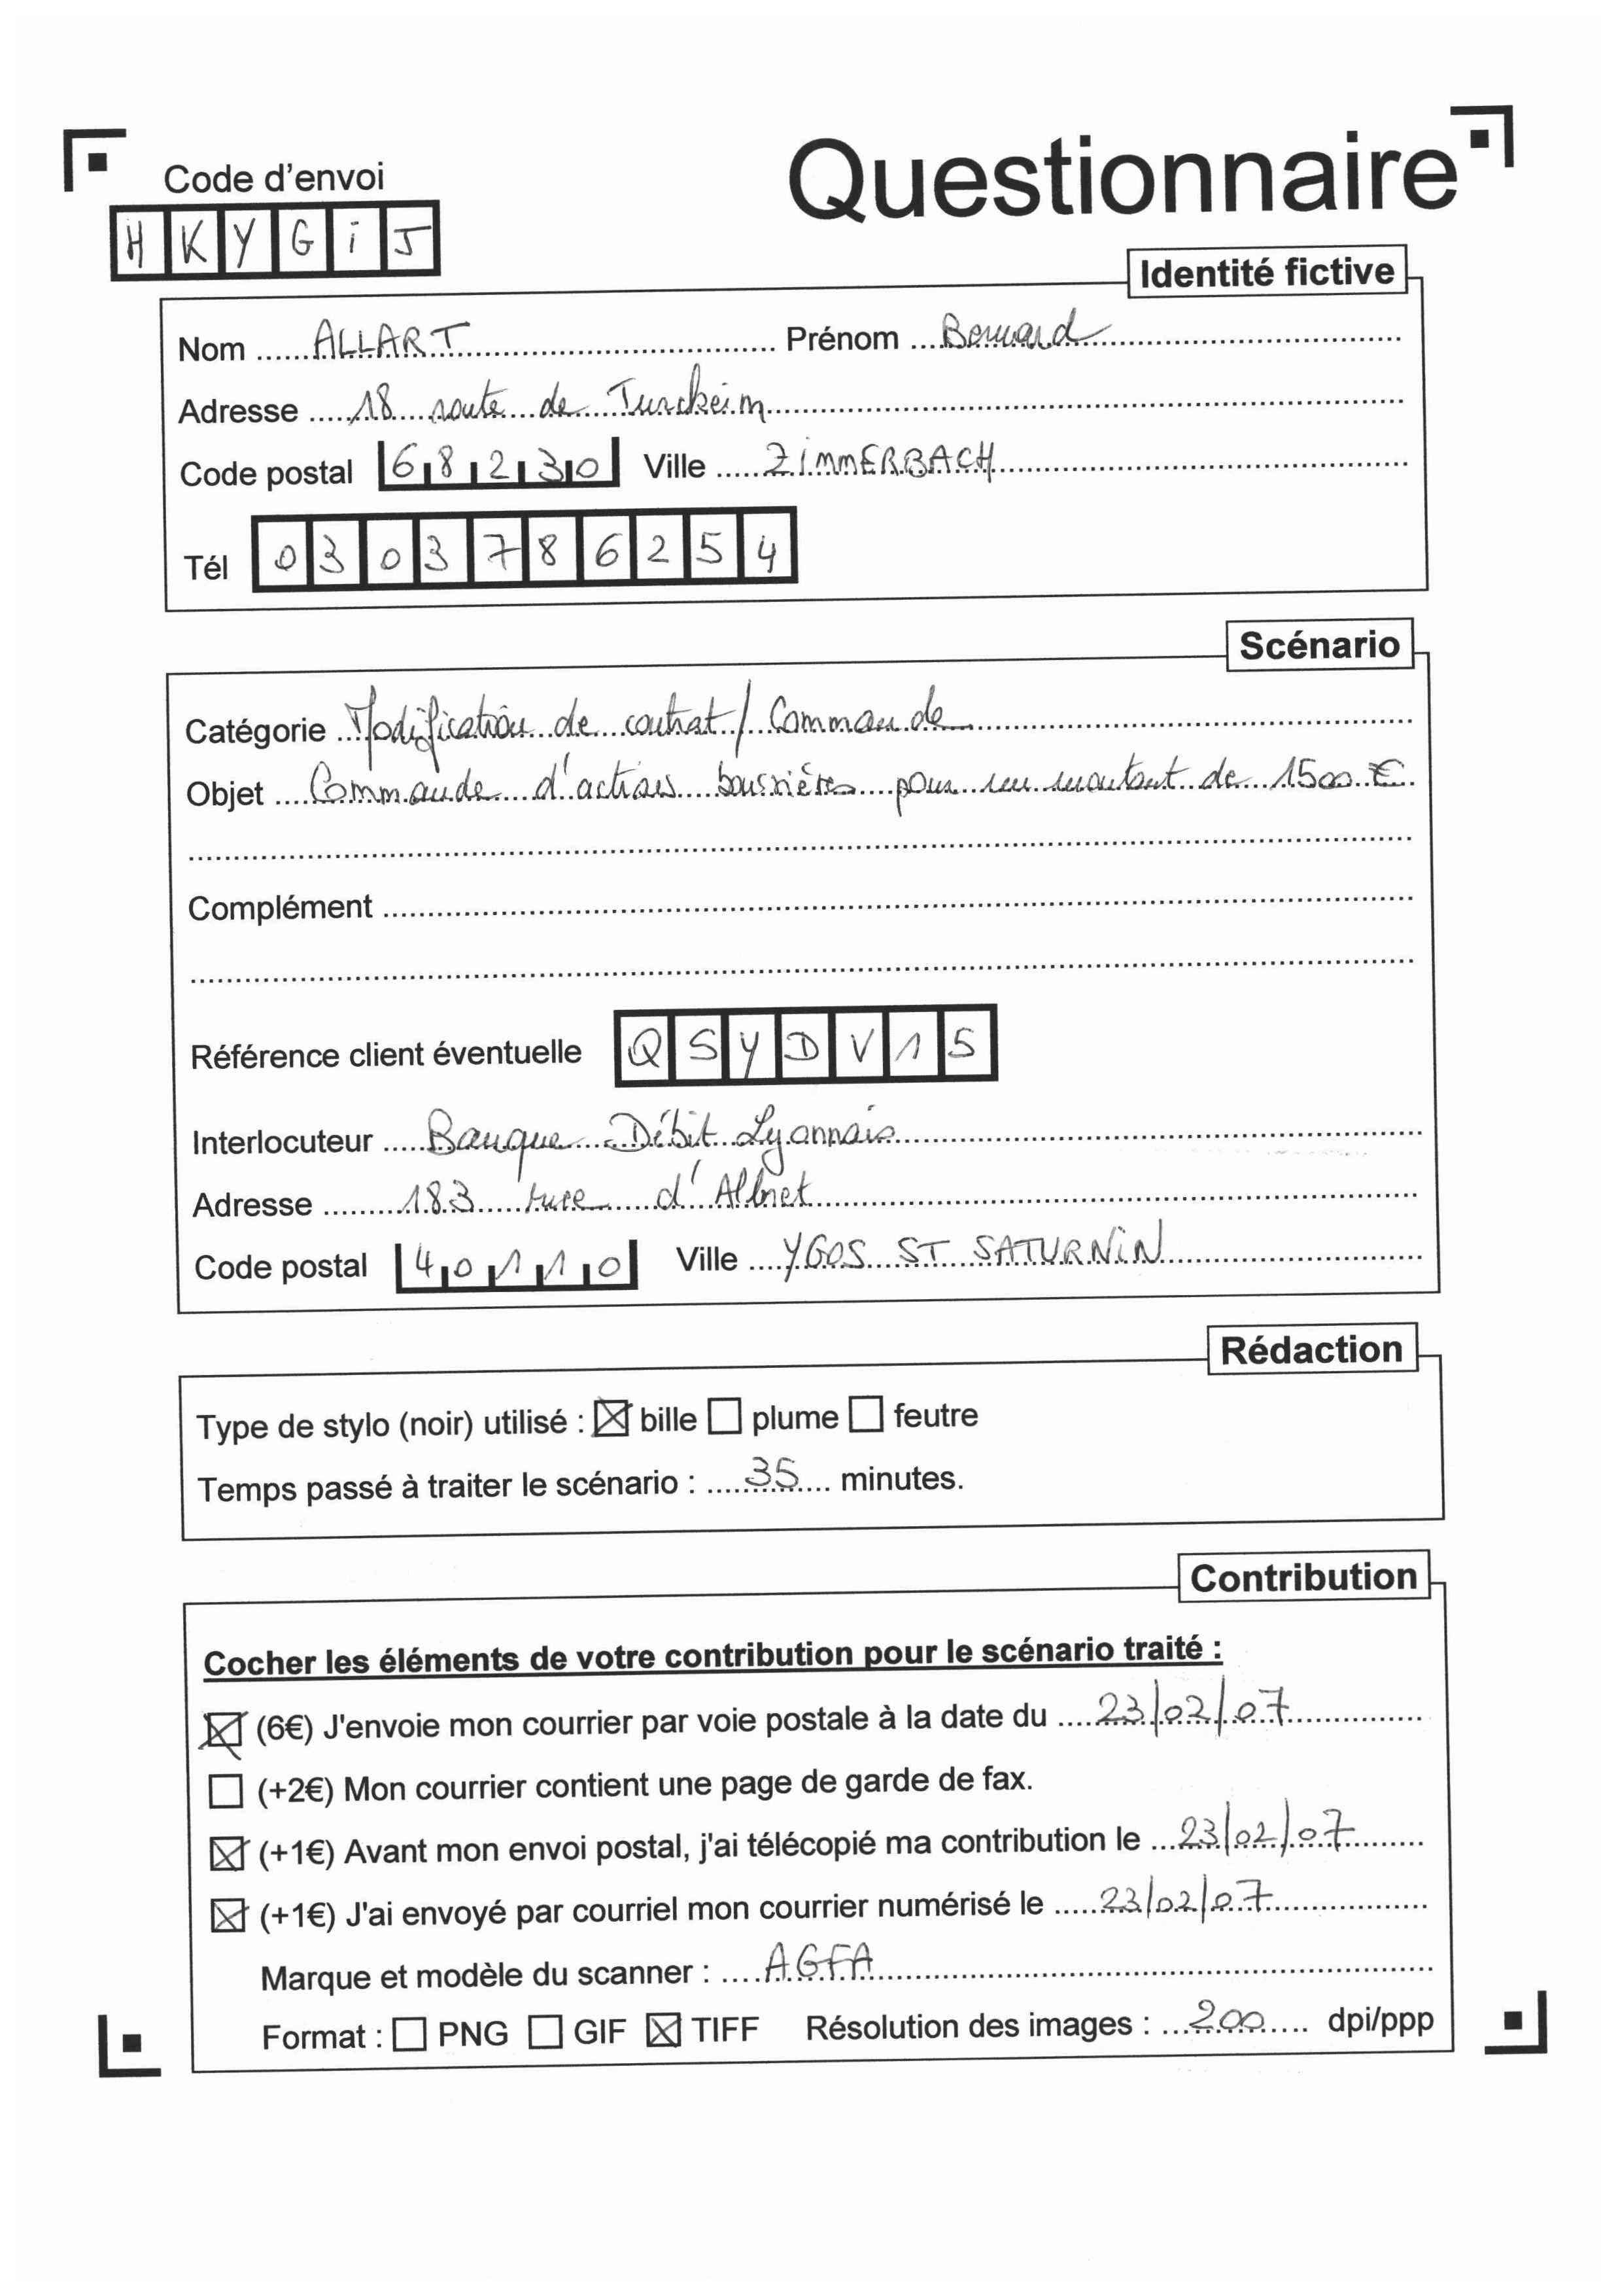 Questionnaire
Code d'envoi
H K Y G i J
Identité fictive
Nom ALLART Prénom Bernard
Adresse 18 route de Turckeim
Code postal 68230 Ville ZIMMERBACH
Tél 0303786254
Scénario
Catégorie Modification de contrat / Commande
Objet Commande d'actions boursières pour un montant de 1500 €
Complément
Référence client éventuelle QSYDV15
Interlocuteur Banque Débit Lyonnais
Adresse 183 d'Albret
Code postal 40110 Ville YGOS ST SATURNIN
Rédaction
Type de stylo (noir) utilisé : ☒ bille ☐ plume ☐ feutre
Temps passé à traiter le scénario : 35 minutes.
Contribution
Cocher les éléments de votre contribution pour le scénario traité :
☒ (6€) J'envoie mon courrier par voie postale à la date du 23/02/07
☐ (+2€) Mon courrier contient une page de garde de fax.
☒ (+1€) Avant mon envoi postal, j'ai télécopié ma contribution le 23/02/07
☒ (+1€) J'ai envoyé par courriel mon courrier numérisé le 23/02/07
Marque et modèle du scanner : AGFA
Format : ☐ PNG ☐ GIF ☒ TIFF Résolution des images : 200 dpi/ppp